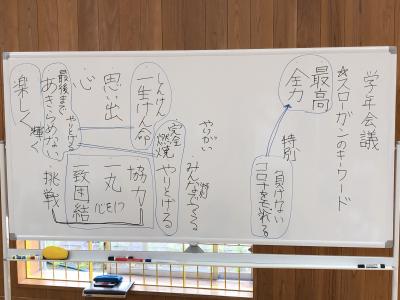 学年会議
☆スローガンのキーワード
最高
全力
特別
負けない
コロナを忘れる
やりがい
みんなで
完全燃焼
やりとげる
しんけん
一生けん命
思い出
心
協力
一丸
心を1つ
一致団結
最後まで
やりとげる
あきらめない
挑戦
楽しく
輝く